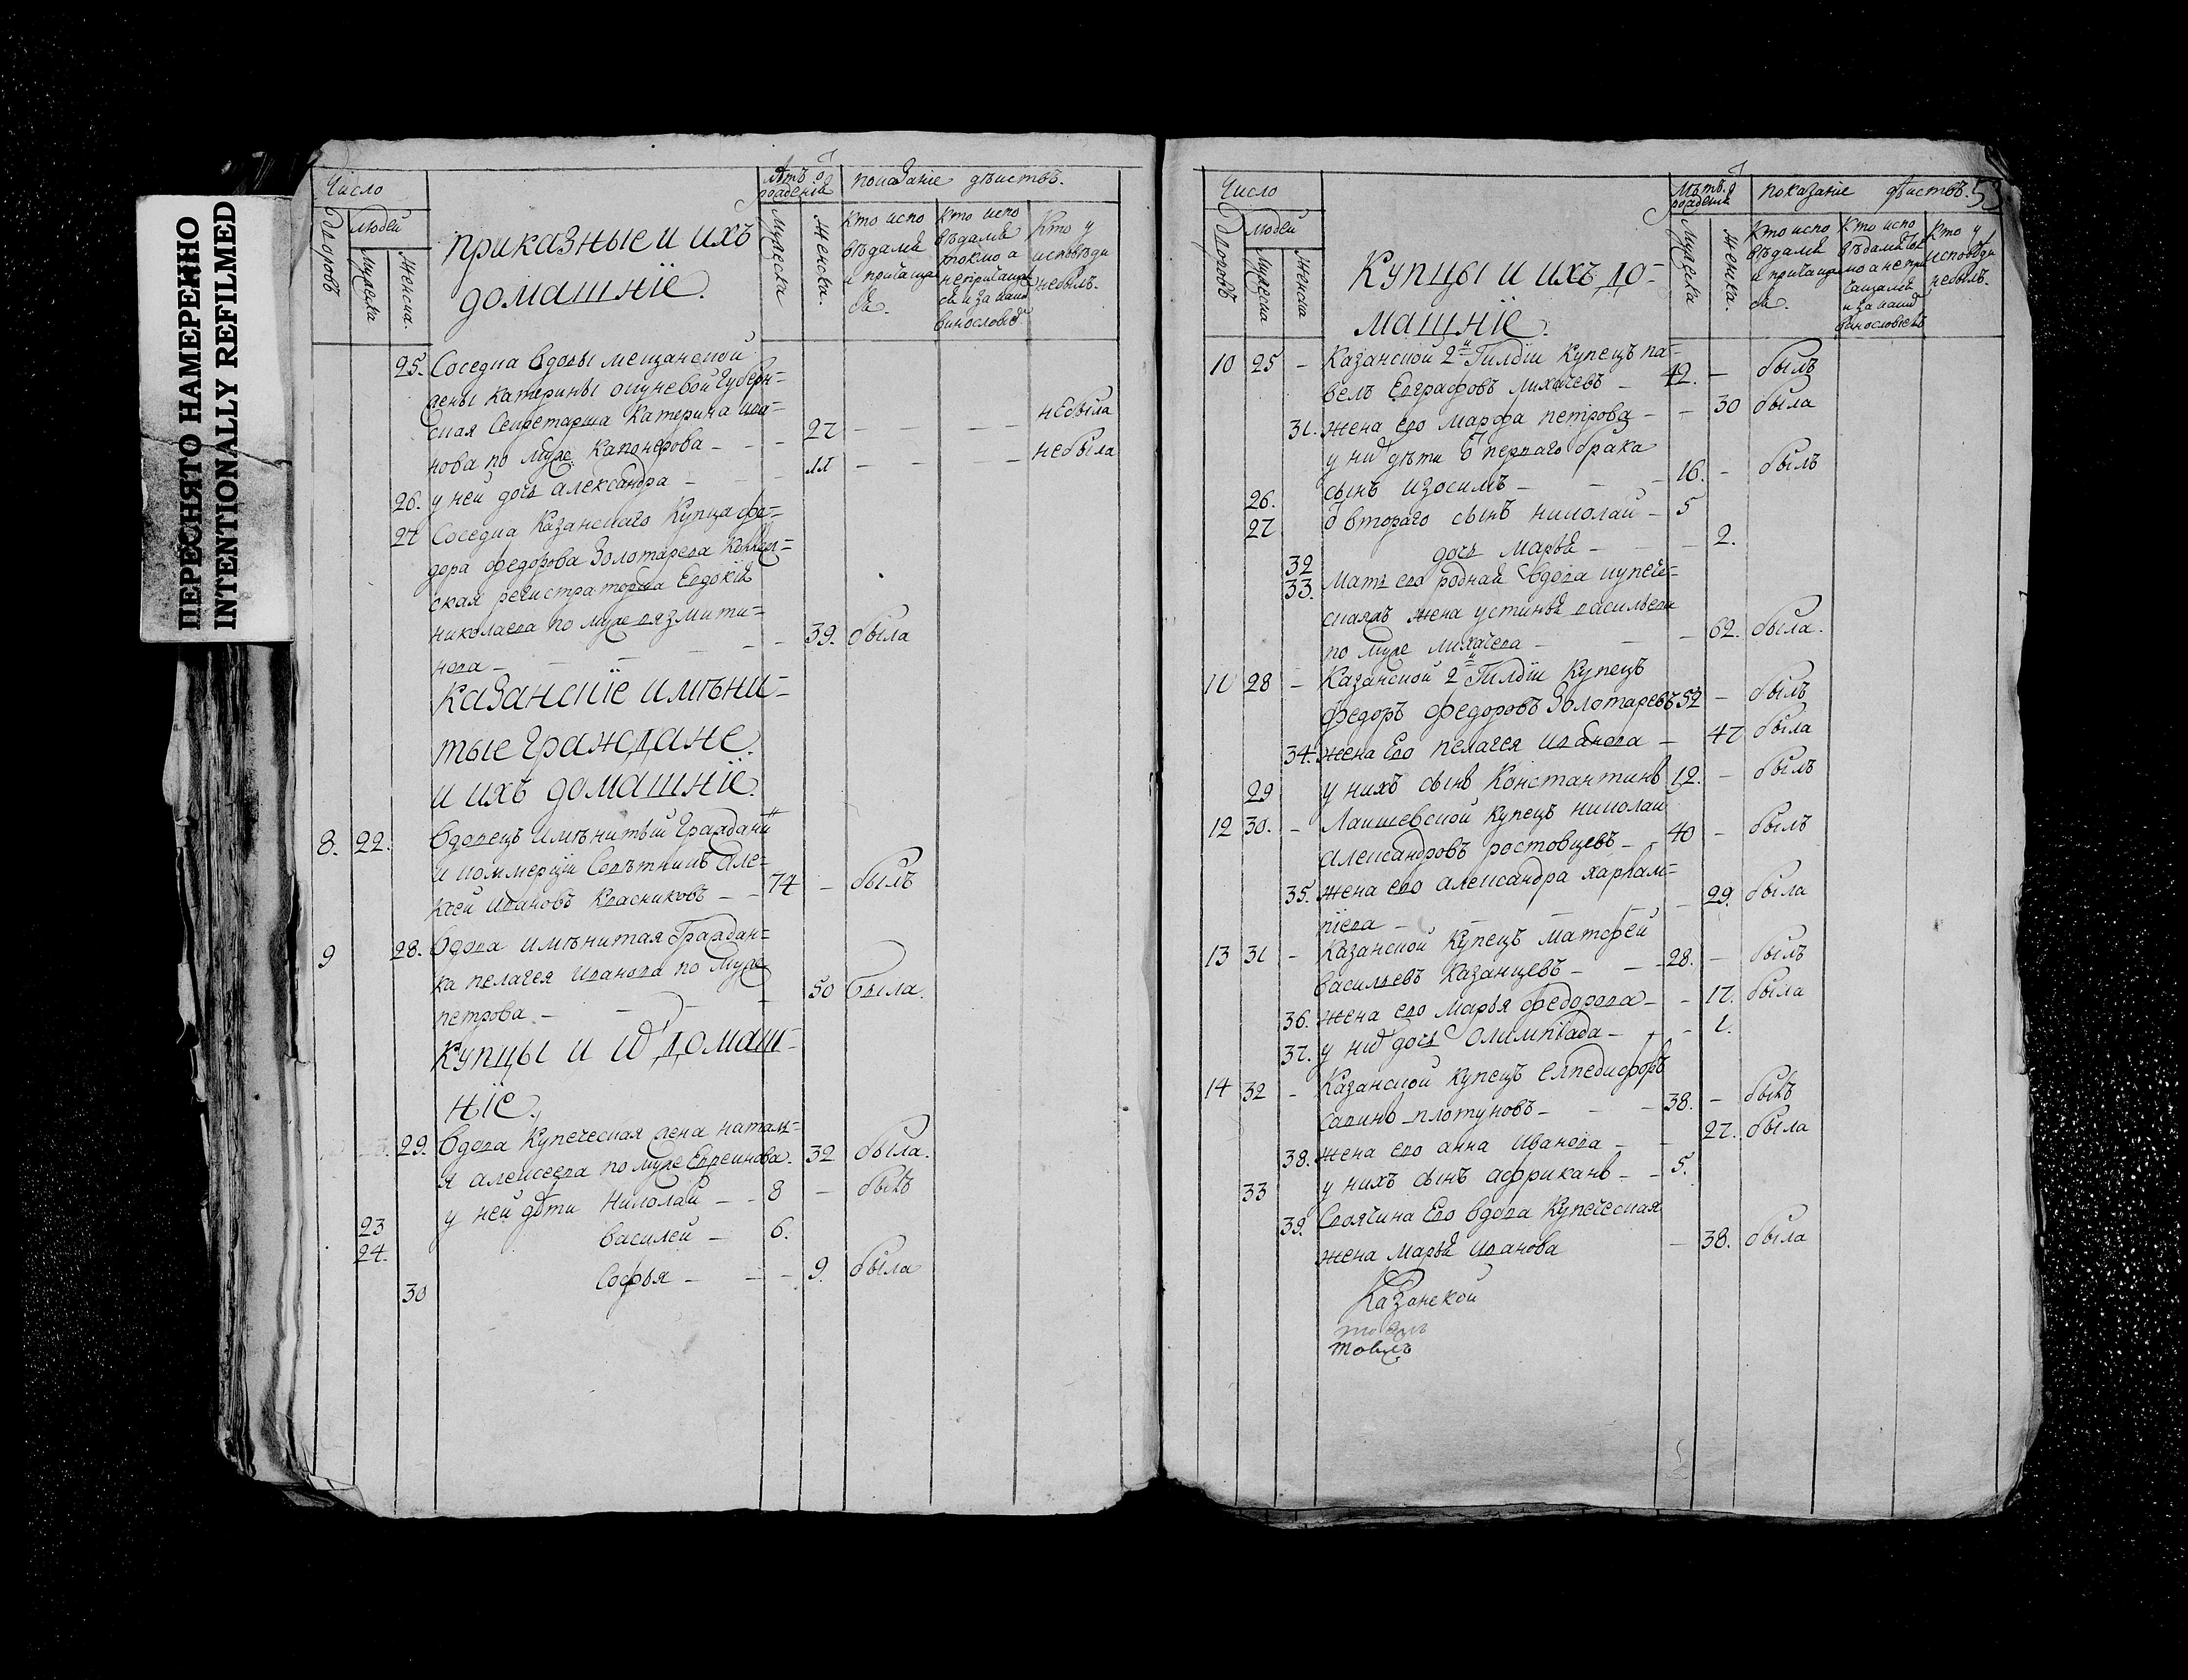 ПЕРЕСНЯТО НАМЕРЕННО
INTENTIONALLY REFILMED
Число
людей
Дворовъ
Мужеска
Женска.
приказные и ихъ
домашнїе.
Лѣтъ ѿ
рожденїя
Мужеска
Женска.
показанїе дѣиствъ.
Кто испо
вѣдался
и причащал
ся.
Кто испо
вѣдался
токмо а
непричащал
ся и за какой
винословїе
Кто у
исповѣди
небылъ.
25. Соседка вдовы мещанской
жены катерины Губерн=
ская Секретарша Катерина ива=
нова по муже Капонерова - - 27 - - - - небыла
26. у ней дочь александра - - - 11 - - - небыла
27 Соседка Казанскаго Купца фе=
дора федорова Золотарева
ская регистраторша Евдокия
николаева по муже вязмити=
нова - - - - - 39. была
Казанскїе имѣни=
тые граждане
и ихъ домашнїе.
8. 22. Вдовецъ имѣнитый Граждани
и коммерцїи Советникъ але=
ксей ивановъ Квасниковъ - - 74 - былъ
9 28. Вдова имѣнитая Граждан=
ка пелагея иванова по муже
петрова - - - - 50 была.
Купцы и их домаш=
нїе.
29. Вдова Купеческая жена наталь=
я алексеева по муже Евреинова. 32 была.
23 у ней дѣти Николай - - 8 - былъ
24. василей - 6.
30 Софья - - - 9. была
Число
людей
Дворовъ
Мужеска
Женска
Купцы и ихъ до=
машнїе.
Лѣтъ ѿ
рожденїя
Мужеска
Женска.
показанїе дѣиствъ. 53
Кто испо
вѣдался
и причащал
ся.
Кто испо
вѣдался ток
мо а непри
чащался
и за какой
винословїемъ
Кто у
исповѣди
небылъ.
10 25 - Казанской 2й Гилдїи Купецъ па=
велъ Евграфовъ лихачевъ - 42. - былъ
31. жена ево марфа петрова - - 30 была
у них дѣти ѿ перваго брака
26. сынъ изосимъ - - - 16. - былъ
27 ѿ втораго сынъ николай - 5
32 дочь марья - - - 2.
33. мать ево родная вдова купече=
ская жена устинья васильева
по муже лихачева - - - 62. была.
11 28 - Казанской 2й Гилдїи Купецъ
федоръ федоровъ Золотаревъ 52 - былъ
34. жена Ево пелагея иванова - 47 была
29 у нихъ сынъ Константинъ 12. - былъ
12 30. - Лаишевской Купецъ николай
александровъ ростовцевъ - 40 - былъ
35. жена ево александра харлам=
пїева - - - - - 29. была
13 31 - Казанской Купецъ матфей
васильевъ Казанцевъ - - 28. - былъ
36. жена ево марья федорова - - 17. была
37. у них дочь Олимпїада - - - 1.
14 32 - Казанской купецъ елпедифоръ
савинъ плотуновъ - - - 38. - былъ
38. жена ево анна иванова - - 27. была
33 у нихъ сынъ африканъ - - 5.
39. Своячина Ево вдова Купеческая
жена марья иванова - 38. была
Казанской